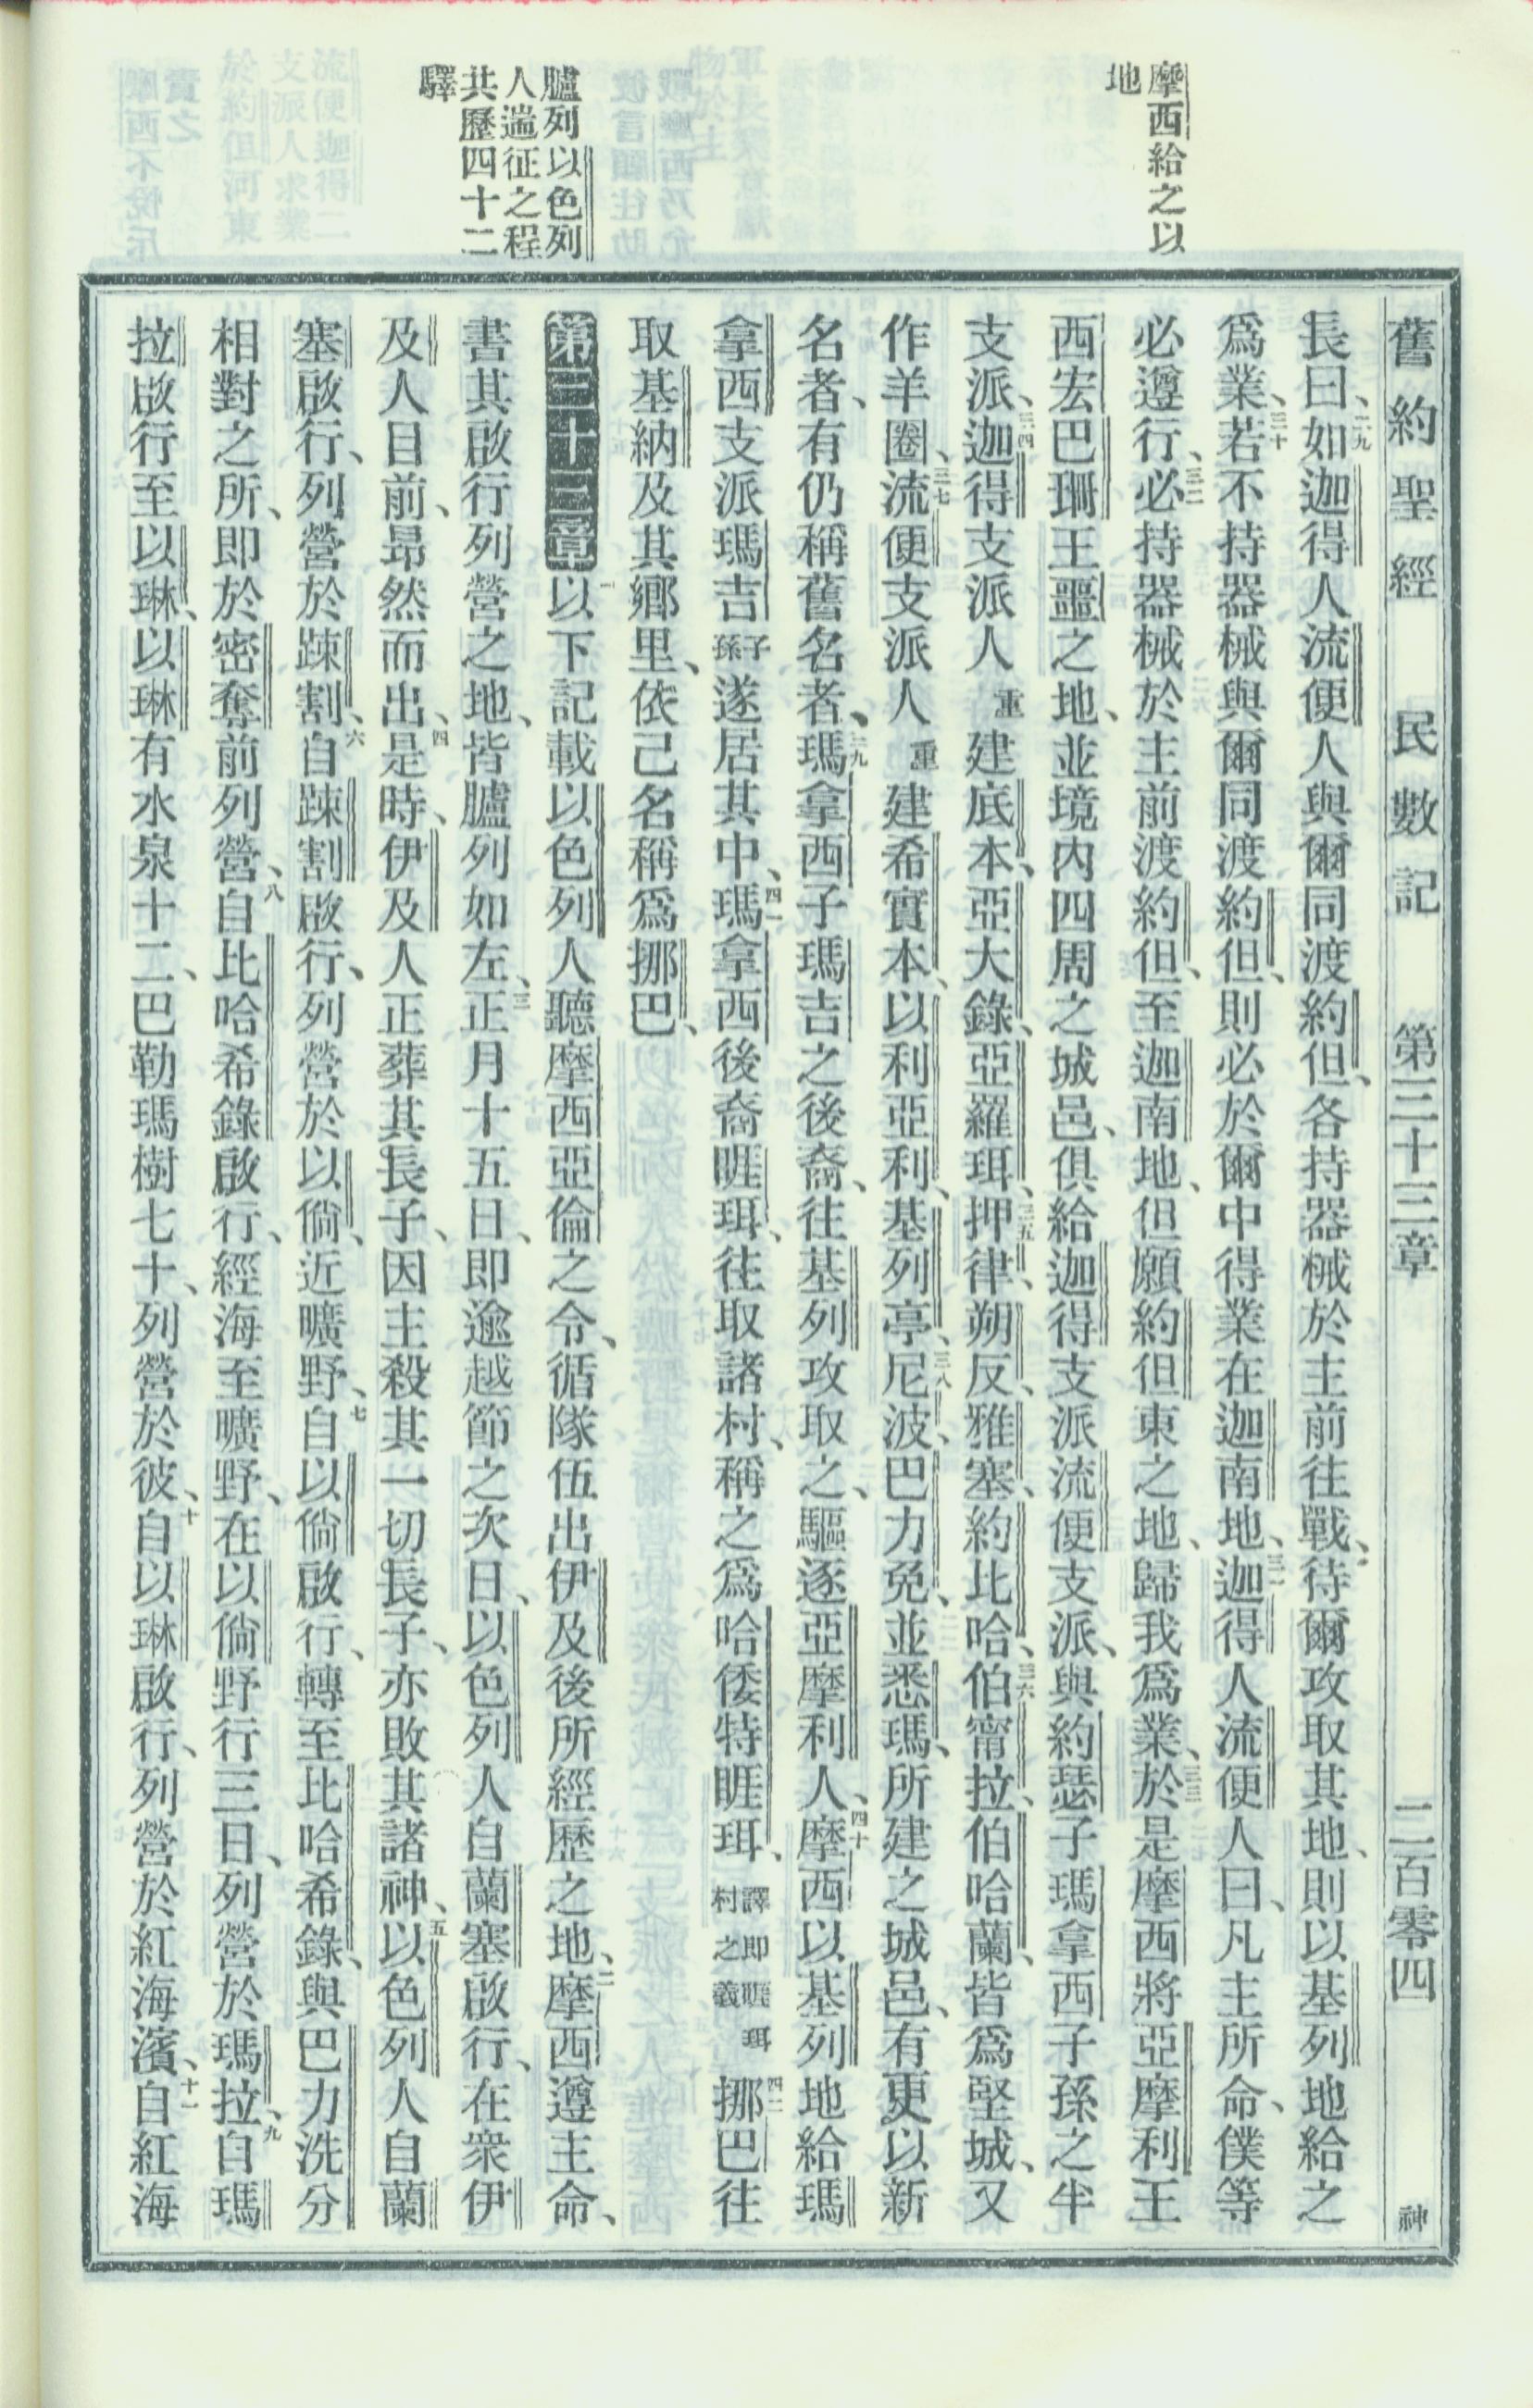 摩西給之以
地
臚列以色列
人遄征之程
共歷四十二
驛
舊約聖經 民數記 第三十三章 二百零四 神
長曰、二九如迦得人流便人與爾同渡約但、各持器械於主前往戰、待爾攻取其地、則以基列地給之
爲業、三十若不持器械與爾同渡約但、則必於爾中得業在迦南地、三一迦得人流便人曰、凡主所命、僕等
必遵行、三二必持器械於主前渡約但、至迦南地、但願約但東之地、歸我爲業、三三於是摩西將亞摩利王
西宏巴珊王噩之地、並境內四周之城邑、俱給迦得支派流便支派、與約瑟子瑪拿西子孫之半
支派、三四迦得支派人重建底本、亞大錄、亞羅珥、三五押律、朔反、雅塞、約比哈、三六伯甯拉、伯哈蘭、皆爲堅城、又
作羊圈、三七流便支派人重建希實本、以利亞利、基列亭、三八尼波、巴力免、並悉瑪、所建之城邑、有更以新
名者、有仍稱舊名者、三九瑪拿西子瑪吉之後裔、往基列攻取之、驅逐亞摩利人、四十摩西以基列地給瑪
拿西支派瑪吉子孫遂居其中、四一瑪拿西後裔睚珥、往取諸村、稱之爲哈倭特睚珥、譯即睚珥村之義四二挪巴往
取基納及其鄉里、依己名稱爲挪巴、
第三十三章 一以下記載以色列人聽摩西亞倫之令、循隊伍出伊及後所經歷之地、二摩西遵主命、
書其啟行列營之地、皆臚列如左、三正月十五日、即逾越節之次日、以色列人自蘭塞啟行、在衆伊
及人目前、昂然而出、四是時、伊及人正葬其長子、因主殺其一切長子、亦敗其諸神、五以色列人自蘭
塞啟行、列營於疎割、六自疎割啟行、列營於以倘、近曠野、七自以倘啟行、轉至比哈希錄、與巴力洗分
相對之所、即於密奪前列營、八自比哈希錄啟行、經海至曠野、在以倘野行三日、列營於瑪拉、九自瑪
拉啟行至以琳、以琳有水泉十二、巴勒瑪樹七十、列營於彼、十自以琳啟行、列營於紅海濱、十一自紅海